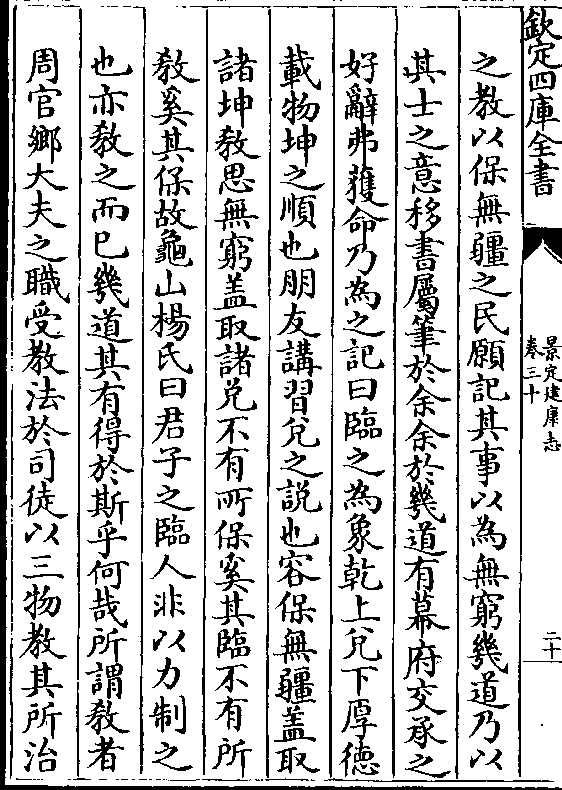 欽定四庫全書
景定建康志
卷三十
二十
之教以保無疆之民願記其事以為無窮幾道乃以
其士之意移書屬筆於余余於幾道有幕府交承之
好辭弗獲命乃為之記曰臨之為象乾上兌下厚德
載物坤之順也朋友講習兌之説也容保無疆盖取
諸坤教思無窮盖取諸兌不有所保奚其臨不有所
教奚其保故龜山楊氏曰君子之臨人非以力制之
也亦教之而已幾道其有得於斯乎何哉所謂教者
周官鄉大夫之職受教法於司徒以三物教其所治